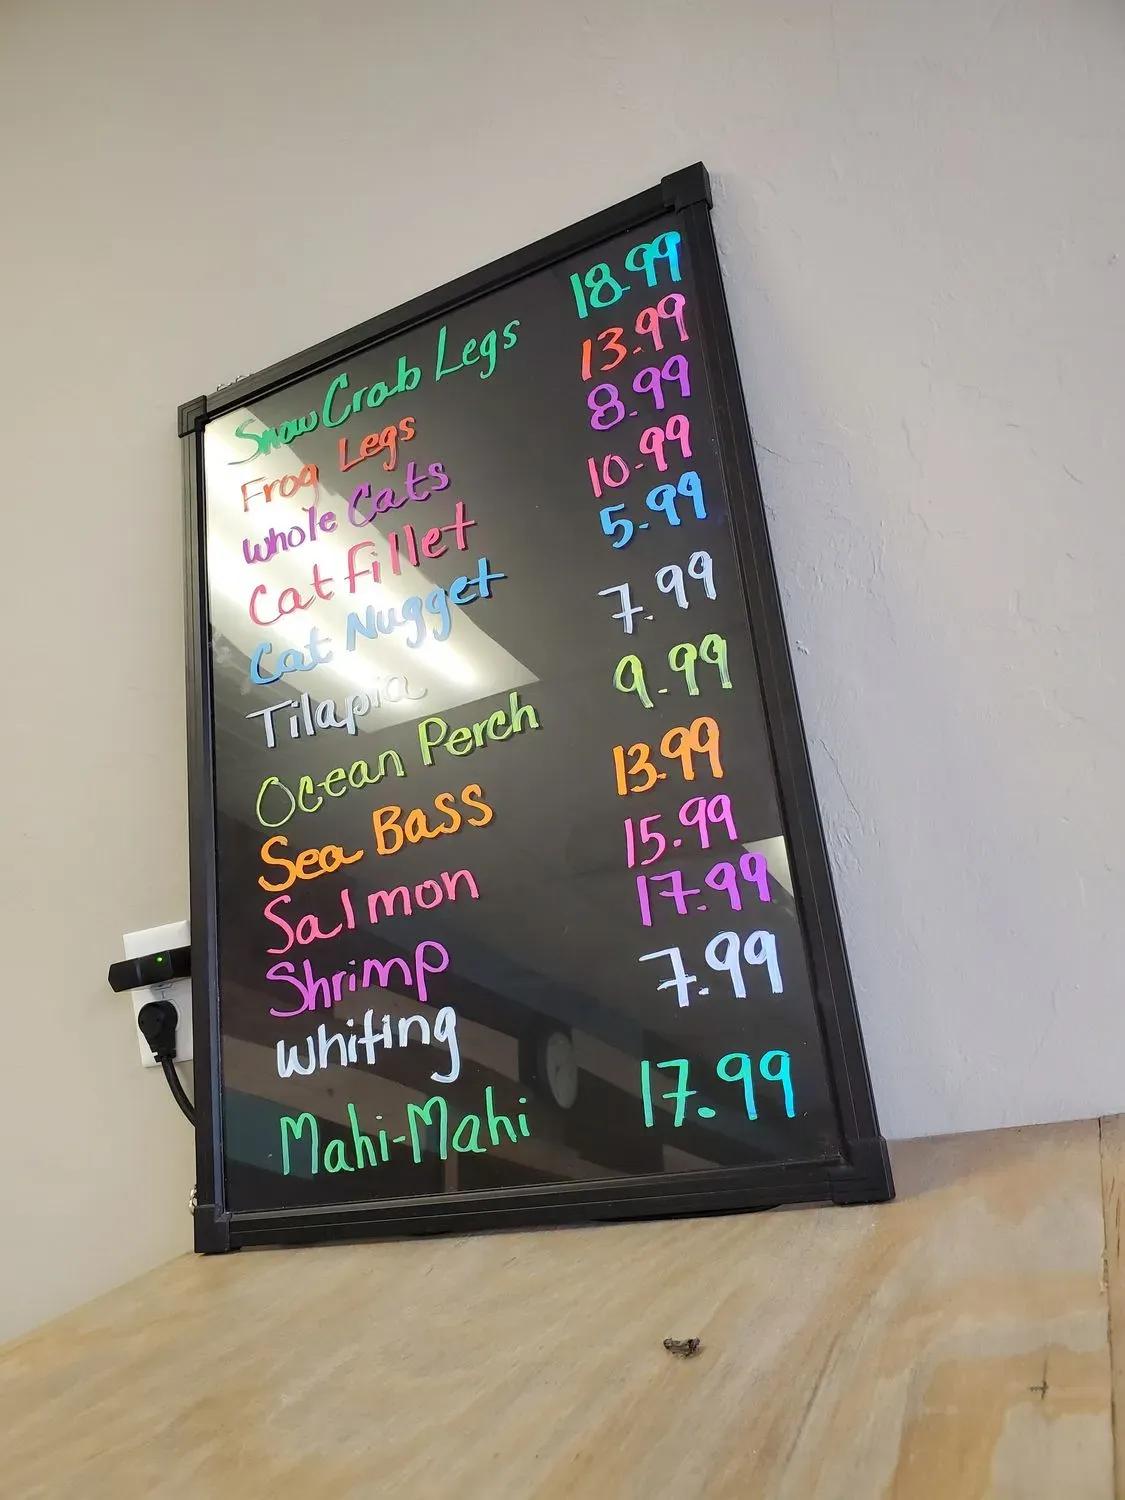 Snow Crab Legs 18.99
Frog Legs 13.99
Whole Cats 8.99
Cat Fillet 10.99
Cat Nugget 5.99
Tilapia 7.99
Ocean Perch 9.99
Sea Bass 13.99
Salmon 15.99
Shrimp 17.99
Whiting 7.99
Mahi-Mahi 17.99